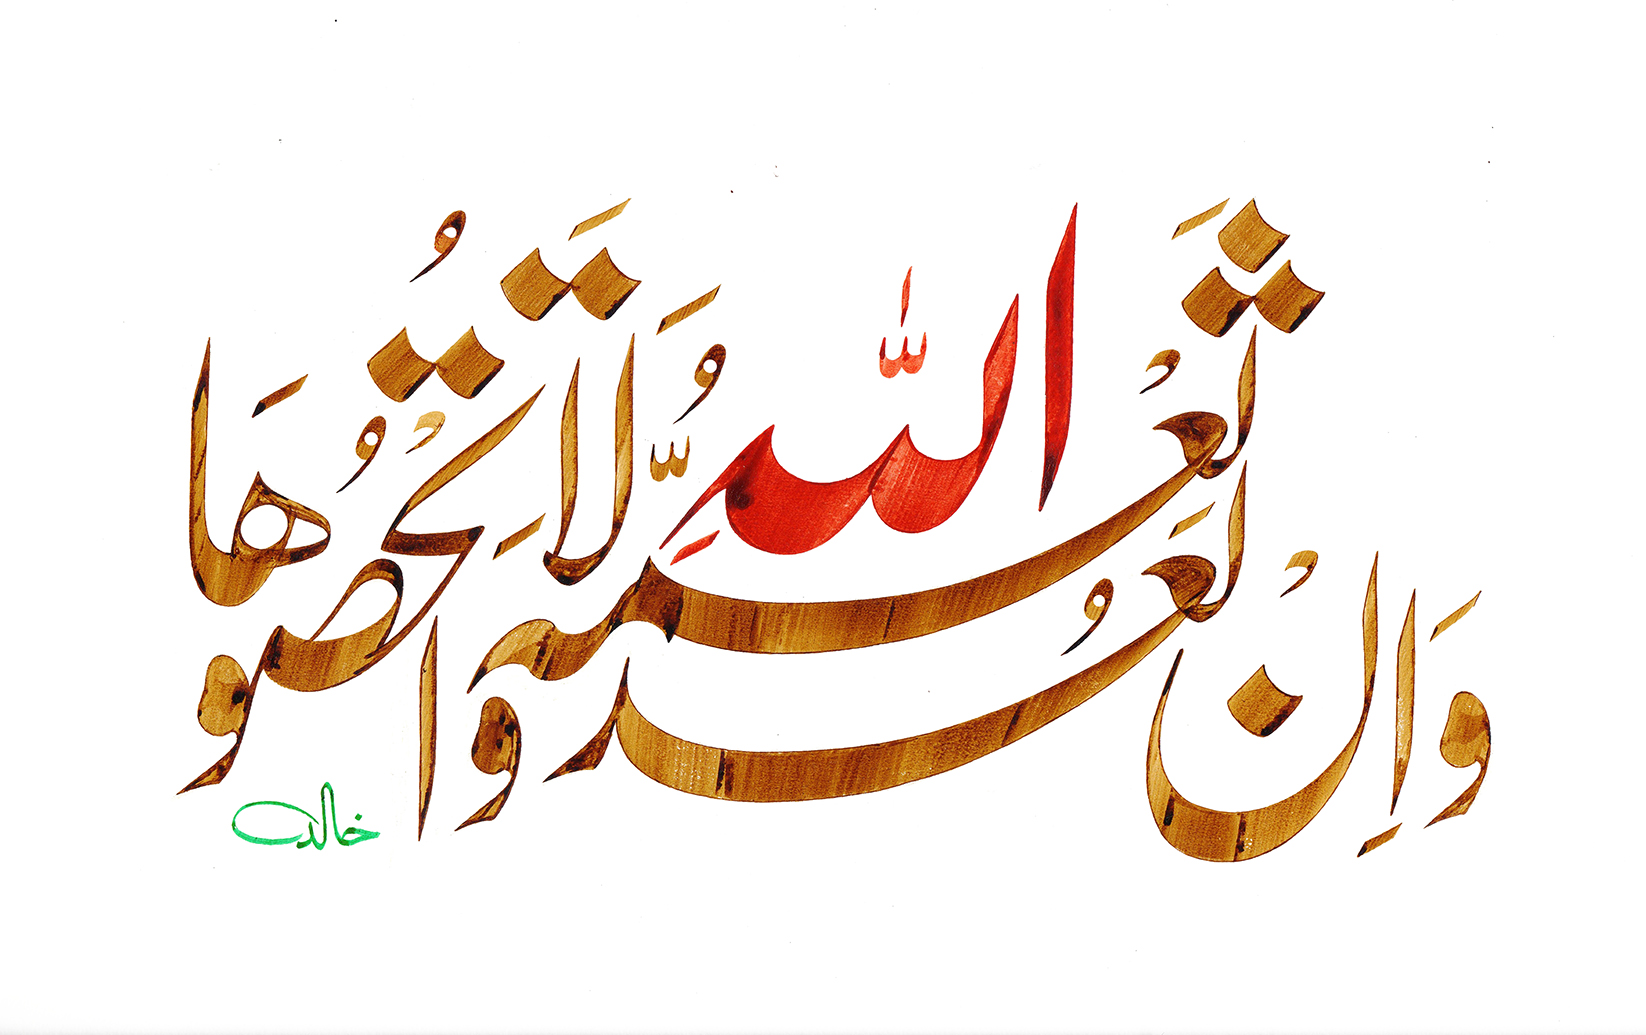 وَإِنْ تَعُدُّوا نِعْمَةَ اللَّهِ لَا تُحْصُوهَا
خالد